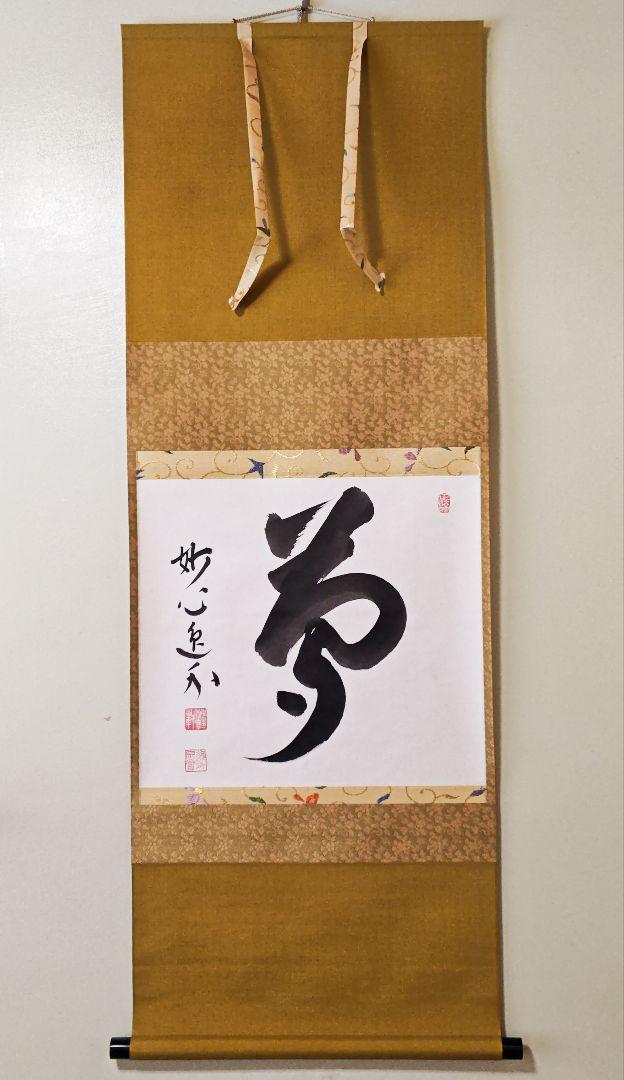 夢
妙心逸外